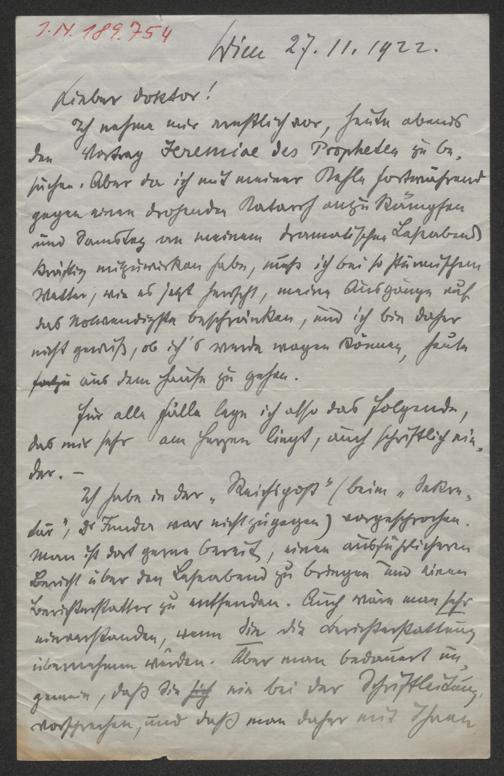 I.N. 189.754
Wien 27.11.1922.
Lieber Doktor!
Ich nehme mir ernstlich vor, heute abends
den Vortrag Jeremiae des Propheten zu be-
suchen. Aber da ich mit meiner Kehle fortwährend
gegen einen drohenden Katarrh anzukämpfen
und Samstag an meinem dramatischen Leseabend
kräftig mitzuwirken habe, muß ich bei so stürmischem
Wetter, wie es jetzt herrscht, meine Ausgänge auf
das Notwendigste beschränken, und ich bin daher
nicht gewiß, ob ich's werde wagen können, heute
aus dem Hause zu gehen.
Für alle Fälle lege ich also das Folgende,
das mir sehr am Herzen liegt, auch schriftlich nie-
der. –
Ich habe in der „Reichspost" (beim „Sekre-
tär", Dr Funder war nicht zugegen) vorgesprochen.
Man ist dort gerne bereit, einen ausführlicheren
Bericht über den Leseabend zu bringen und einen
Berichterstatter zu entsenden. Auch wäre man sehr
einverstanden, wenn Sie die Berichterstattung
übernehmen würden. Aber man bedauert un-
gemein, daß Sie sich nie bei der Schriftleitung
vorsprechen, und daß man daher mit Ihnen